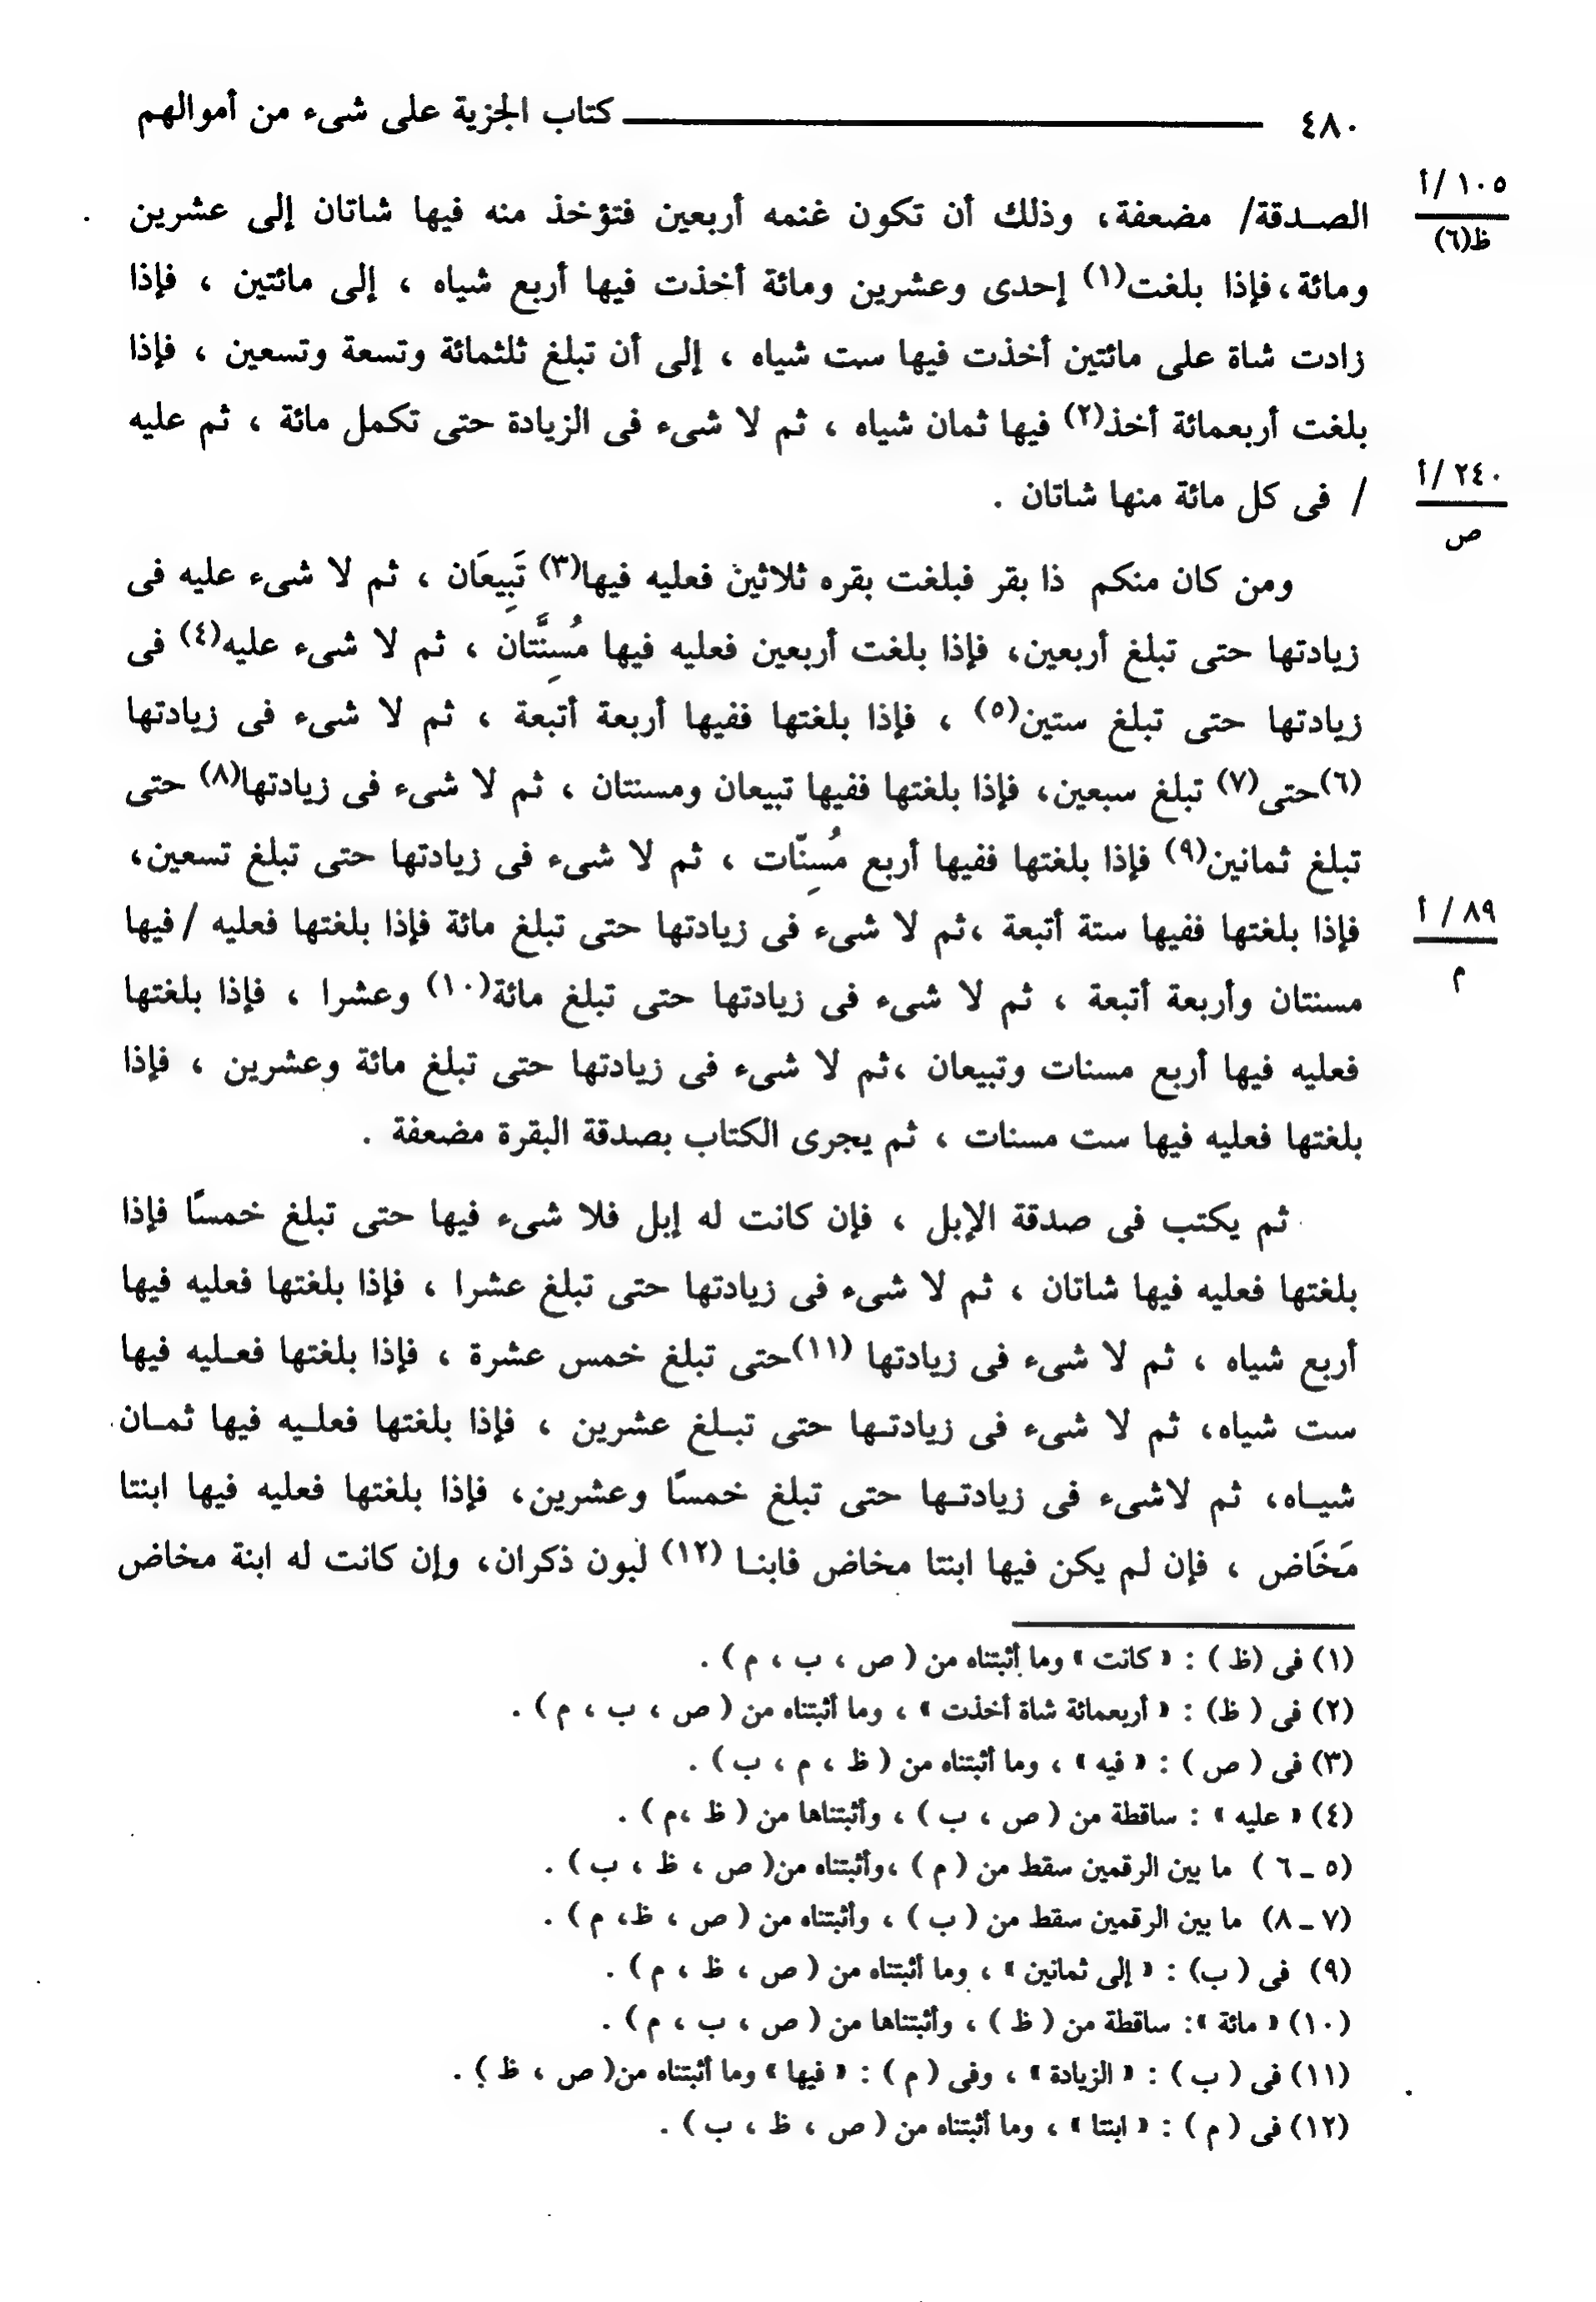 ٤٨٠ كتاب الجزية على شىء من أموالهم
١٠٥ /أ
ظ(٦)
الصـدقة/ مضعفة، وذلك أن تكون غنمه أربعين فتؤخذ منه فيها شاتان إلى عشرين
ومائة، فإذا بلغت(١) إحدى وعشرين ومائة أخذت فيها أربع شياه ، إلى مائتين ، فإذا
زادت شاة على مائتين أخذت فيها ست شياه ، إلى أن تبلغ ثلثمائة وتسعة وتسعين ، فإذا
بلغت أربعمائة أخذ(٢) فيها ثمان شياه ، ثم لا شىء فى الزيادة حتى تكمل مائة ، ثم عليه
٢٤٠ /أ
ص
/ فى كل مائة منها شاتان .
ومن كان منكم ذا بقر فبلغت بقره ثلاثين فعليه فيها(٣) تَبِيعَان ، ثم لا شىء عليه فى
زيادتها حتى تبلغ أربعين، فإذا بلغت أربعين فعليه فيها مُسِنَّتان ، ثم لا شىء عليه(٤) فى
زيادتها حتى تبلغ ستين(٥) ، فإذا بلغتها ففيها أربعة أتبعة ، ثم لا شىء فى زيادتها
(٦)حتى(٧) تبلغ سبعين، فإذا بلغتها ففيها تبيعان ومسنتان ، ثم لا شىء فى زيادتها(٨) حتى
تبلغ ثمانين(٩) فإذا بلغتها ففيها أربع مُسِنّات ، ثم لا شىء فى زيادتها حتى تبلغ تسعين،
٨٩ / أ
م
فإذا بلغتها ففيها ستة أتبعة ،ثم لا شىء فى زيادتها حتى تبلغ مائة فإذا بلغتها فعليه /فيها
مسنتان وأربعة أتبعة ، ثم لا شىء فى زيادتها حتى تبلغ مائة(١٠) وعشرا ، فإذا بلغتها
فعليه فيها أربع مسنات وتبيعان ،ثم لا شىء فى زيادتها حتى تبلغ مائة وعشرين ، فإذا
بلغتها فعليه فيها ست مسنات ، ثم يجرى الكتاب بصدقة البقرة مضعفة .
ثم يكتب فى صدقة الإبل ، فإن كانت له إبل فلا شىء فيها حتى تبلغ خمسًا فإذا
بلغتها فعليه فيها شاتان ، ثم لا شىء فى زيادتها حتى تبلغ عشرا ، فإذا بلغتها فعليه فيها
أربع شياه ، ثم لا شىء فى زيادتها (١١)حتى تبلغ خمس عشرة ، فإذا بلغتها فعـليه فيها
ست شياه، ثم لا شىء فى زيادتـها حتى تبـلغ عشرين ، فإذا بلغتها فعلـيه فيها ثمـان
شيـاه، ثم لاشىء فى زيادتـها حتى تبلغ خمسًا وعشرين، فإذا بلغتها فعليه فيها ابنتا
مَخَاض ، فإن لم يكن فيها ابنتا مخاض فابنـا (١٢) لبون ذكران، وإن كانت له ابنة مخاض
(١) فى (ظ ) : « كانت » وما أثبتناه من ( ص ، ب ، م ) .
(٢) فى ( ظ) : « أربعمائة شاة أخذت » ، وما أثبتناه من ( ص ، ب ، م ) .
(٣) فى ( ص ) : « فيه » ، وما أثبتناه من ( ظ ، م ، ب ) .
(٤) « عليه » : ساقطة من ( ص ، ب ) ، وأثبتناها من ( ظ ،م ) .
(٥ ـ ٦ ) ما بين الرقمين سقط من ( م ) ،وأثبتناه من( ص ، ظ ، ب ) .
(٧ ـ ٨) ما بين الرقمين سقط من ( ب ) ، وأثبتناه من ( ص ، ظ، م ) .
(٩) فى ( ب) : « إلى ثمانين » ، وما أثبتناه من ( ص ، ظ ، م ) .
(١٠) « مائة »: ساقطة من ( ظ ) ، وأثبتناها من ( ص ، ب ، م ) .
(١١) فى ( ب ) : « الزيادة » ، وفى ( م ) : « فيها » وما أثبتناه من( ص ، ظ ) .
(١٢) فى ( م ) : « ابنتا » ، وما أثبتناه من ( ص ، ظ ، ب ) .